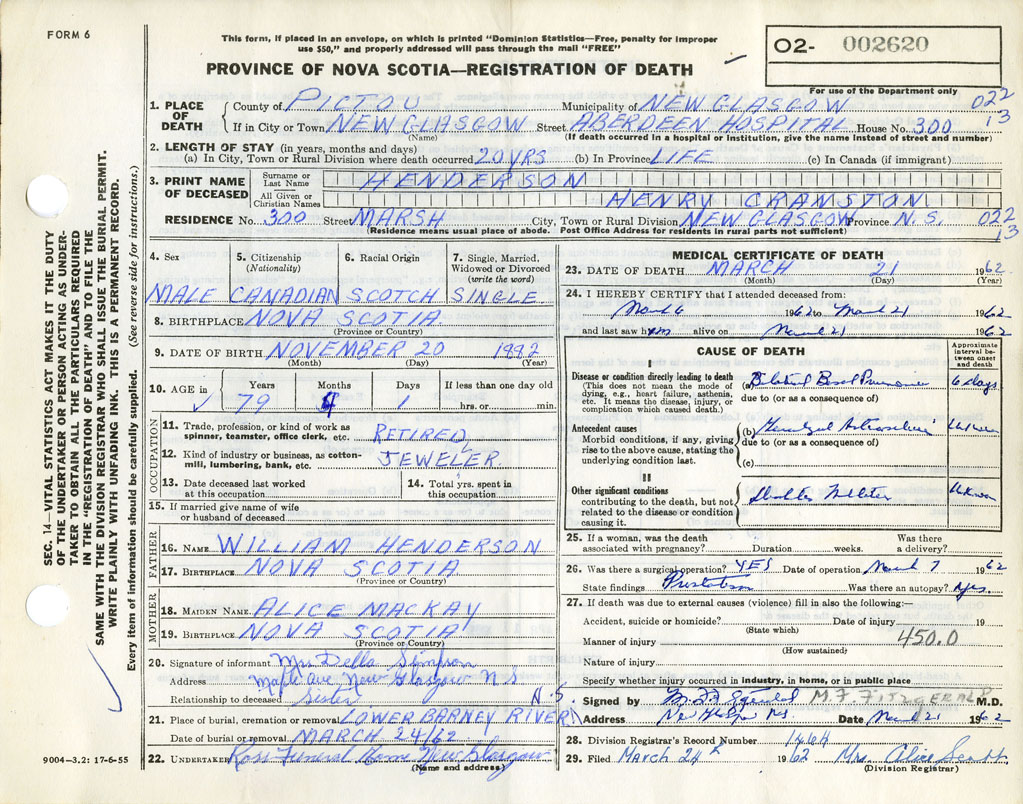 FORM 6
This form, if placed in an envelope, on which is printed "Dominion Statistics—Free, penalty for improper
use $50," and properly addressed will pass through the mail "FREE"
PROVINCE OF NOVA SCOTIA—REGISTRATION OF DEATH
O2- 002620
For use of the Department only
1. PLACE OF DEATH County of PICTOU Municipality of NEW GLASGOW 022
If in City or Town NEW GLASGOW Street ABERDEEN HOSPITAL House No. 300 13
(Name) (If death occurred in a hospital or institution, give the name instead of street and number)
2. LENGTH OF STAY (in years, months and days)
(a) In City, Town or Rural Division where death occurred 20 YRS (b) In Province LIFE (c) In Canada (if immigrant)
3. PRINT NAME OF DECEASED Surname or Last Name HENDERSON
All Given or Christian Names HENRY CRANSTON
RESIDENCE No. 300 Street MARSH City, Town or Rural Division NEW GLASGOW Province N.S. 022
13
(Residence means usual place of abode. Post Office Address for residents in rural parts not sufficient)
4. Sex 5. Citizenship (Nationality) 6. Racial Origin 7. Single, Married, Widowed or Divorced (write the word)
MALE CANADIAN SCOTCH SINGLE
8. BIRTHPLACE NOVA SCOTIA
(Province or Country)
9. DATE OF BIRTH NOVEMBER 20
(Month) (Day) (Year)
10. AGE in Years Months Days If less than one day old
79 4 1 hrs. or min.
OCCUPATION
11. Trade, profession, or kind of work as
spinner, teamster, office clerk, etc. RETIRED
12. Kind of industry or business, as cotton-
mill, lumbering, bank, etc. JEWELER.
13. Date deceased last worked
at this occupation
14. Total yrs. spent in
this occupation
15. If married give name of wife
or husband of deceased
FATHER
16. NAME WILLIAM HENDERSON
17. BIRTHPLACE NOVA SCOTIA
(Province or Country)
MOTHER
18. MAIDEN NAME ALICE MACKAY
19. BIRTHPLACE NOVA SCOTIA
(Province or Country)
20. Signature of informant Mrs Della Simpson
Address Maple Ave, New Glasgow N S
Relationship to deceased Sister N.S.
21. Place of burial, cremation or removal LOWER BARNEY RIVER
Date of burial or removal MARCH 24/62
22. UNDERTAKER Ross Funeral Home New Glasgow
(Name and address)
MEDICAL CERTIFICATE OF DEATH
23. DATE OF DEATH MARCH 21 1962
(Month) (Day) (Year)
24. I HEREBY CERTIFY that I attended deceased from:
March 6 1962 to March 21 1962
and last saw him alive on March 21 1962
CAUSE OF DEATH
Approximate interval be- tween onset and death
I
Disease or condition directly leading to death
(This does not mean the mode of
dying, e.g., heart failure, asthenia,
etc. It means the disease, injury, or
complication which caused death.)
(a) Bilateral Basal Pneumonia 6 days
due to (or as a consequence of)
Antecedent causes
Morbid conditions, if any, giving
rise to the above cause, stating the
underlying condition last.
(b) Generalized Arteriosclerosis Unknown
due to (or as a consequence of)
(c)
II
Other significant conditions
contributing to the death, but not
related to the disease or condition
causing it.
Diabetes Mellitus Unknown
25. If a woman, was the death
associated with pregnancy? Duration weeks. Was there
a delivery?
26. Was there a surgical operation? YES Date of operation March 7 1962
State findings Was there an autopsy? Yes.
27. If death was due to external causes (violence) fill in also the following:—
Accident, suicide or homicide? Date of injury 19
(State which)
Manner of injury 450.0
(How sustained)
Nature of injury
Specify whether injury occurred in industry, in home, or in public place
Signed by M. F. Fitzgerald M.F. FITZGERALD M.D.
Address New Glasgow NS Date March 21 1962
28. Division Registrar's Record Number 1464
29. Filed March 24th 1962 Mrs. Alice Scott
(Division Registrar)
9004—3.2: 17-6-55
SEC. 14—VITAL STATISTICS ACT MAKES IT THE DUTY
OF THE UNDERTAKER OR PERSON ACTING AS UNDER-
TAKER TO OBTAIN ALL THE PARTICULARS REQUIRED
IN THE "REGISTRATION OF DEATH" AND TO FILE THE
SAME WITH THE DIVISION REGISTRAR WHO SHALL ISSUE THE BURIAL PERMIT.
WRITE PLAINLY WITH UNFADING INK. THIS IS A PERMANENT RECORD.
Every item of information should be carefully supplied. (See reverse side for instructions.)